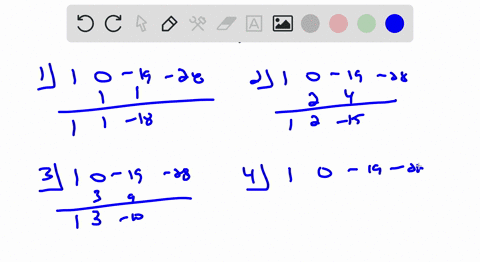 1) 1 0 -19 -28
1 1
1 1 -18
2) 1 0 -19 -28
2 4
1 2 -15
3) 1 0 -19 -28
3 9
1 3 -10
4) 1 0 -19 -28
A